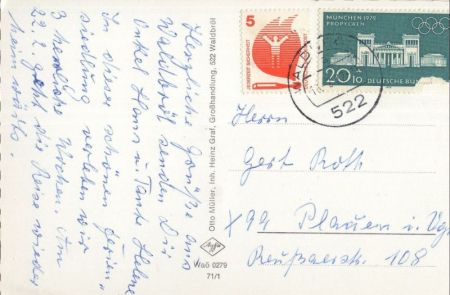 Herzliche Grüße aus
Waldbröl senden Dir
Onkel Hans u. Tante Helene
In dieser schönen Ferien-
siedlung verleben wir
3 herrliche Wochen. Am
22.2. geht die Reise wieder
heimwärts.
Otto Müller, Inh. Heinz Graf, Großhandlung, 522 Waldbröl
Agfa
Waö 0279
71/1
5
MÜNCHEN 1972
PROPYLÄEN
20+10
DEUTSCHE BUN
522
Herrn
Gert Roth
X99 Plauen i. Vgt.
Reußaerstr. 108